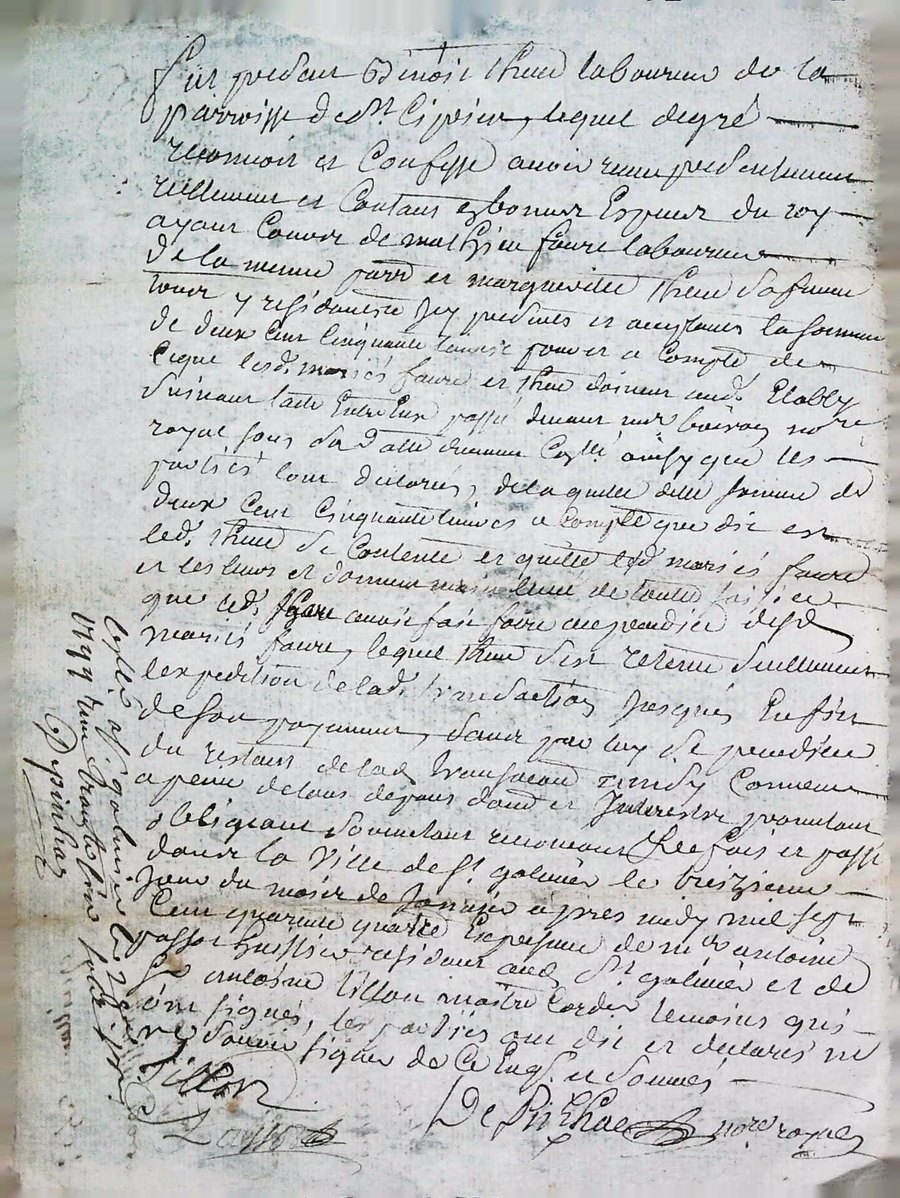 Fut present Benoist Theue laboureur de la
parroisse de St Ciprien, lequel degré
reconnoit et Confesse avoir receu presentement
reellement et Contant en bonnes Especes du roy
ayant Cours de mathieu faure laboureur
de la meme parr et margueritte Theue sa femme
tous y residants Icy presents et acceptants la somme
de deux Cent Cinquante livres pour et a Compte de
Ceque lesd. mariés faure et Theue doivent aud.
suivant lacte Entre Eux passé devant me nore
royal sous sa datte deument Collé ainsy que les
parties lont declarés, de laquelle ditte somme de
deux Cent Cinquante livres a Compte que dit est
led. Theue se Contente et quitte lesd. mariés faure
et les leurs et donne main levée de toutte saisie
que led. avoit fait faire au prejudice desd.
mariés faure, lequel Theue s'est retenu
lexpedition de lad. transaction Jusques En fin
de son payement, sauf par luy de
du restant de lad. transaction ainsy Convenu
a peine de tous depans domd et Interestz promettant
obligeant soumettant renonceant &c fait et passé
dans la Ville de St galmier le treizieme
Jour du mois de Janvier apres midy mil sept
Cent quarante quatre En presence de me antoine
huissier residant aud. St galmier et de
sr antoine Tillon maitre Cordier temoins qui
ont signés, les parties ont dit et declarés ne
sçavoir signer de Ce Enq. et sommés
Tillon
De Pinhac nore royal
a St galmier le
1744 receu trente six sols
Depinhac